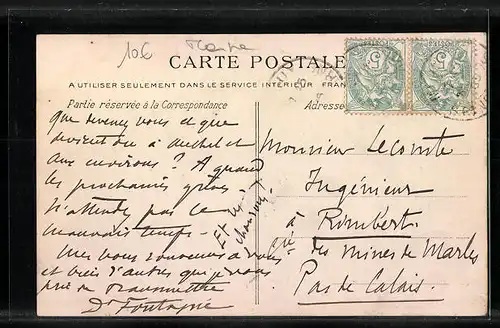 10€
CARTE POSTALE
A UTILISER SEULEMENT DANS LE SERVICE INTÉRIEUR
Partie réservée à la Correspondance
Adresse
Que devenez vous et que
devient on à Auchel et
aux environs ? A quand
les prochaines grèves
N'attendez pas le
mauvais temps -
Mes vous
et bien d'autres que je vous
prie de transmettre
Dr
Et les
chansons ?
Monsieur Lecomte
Ingénieur
à Rimbert
des Mines de Marles
Pas de Calais.